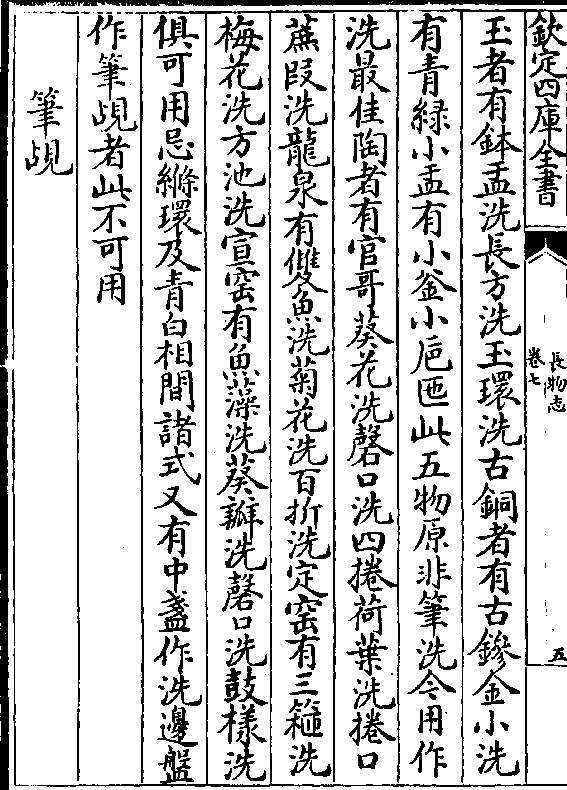 欽定四庫全書
長物志
卷七
五
玉者有鉢盂洗長方洗玉環洗古銅者有古鏒金小洗
有青綠小盂有小釜小巵匜此五物原非筆洗今用作
洗最佳陶者有官哥葵花洗磬口洗四捲荷葉洗捲口
蔗段洗龍泉有雙魚洗菊花洗百折洗定窑有三箍洗
梅花洗方池洗宣窑有魚藻洗葵瓣洗磬口洗鼓樣洗
俱可用忌絛環及青白相間諸式又有中盞作洗邊盤
作筆覘者此不可用
筆覘